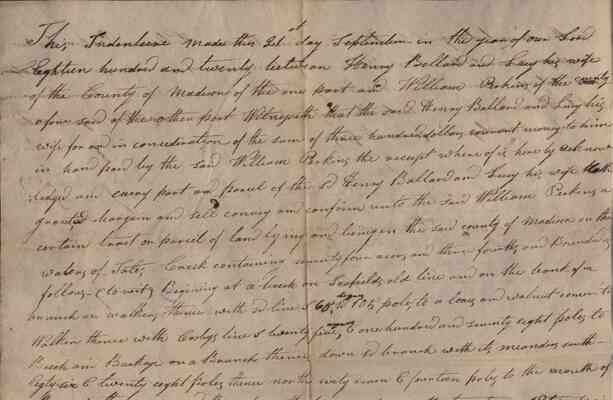 This Indenture made this 21st day September in the year of our Lord
Eighteen hundred and twenty between Henry Ballard and Lucy his wife
of the County of Madison of the one part and William Perkins of the county
afore said of the other part Witnesseth that the said Henry Ballard and Lucy his
wife for and in consideration of the sum of three hundred dollars currant money to him
in hand paid by the said William Perkins the receipt where of is here by acknow
ledged and every part and parcel of the sd Henry Ballard and Lucy his wife hath
granted Bargain and sell convey and confirm unto the said William Perkins a
certain tract or parcel of land lying and being in the said county of Madison on the
waters of Tates Creek containing seventy four acres and three fourths and Bounded
follows (to wit) Begining at a beech on old line and on the bank of a
branch thence with sd line S 60 degrees 104 poles to a and walnut corner to
Walker thence with line S twenty five degrees E one hundred and seventy eight poles to
Beech and on a Branch thence down sd branch with its meanders south
Eighty six E twenty eight poles thence north sixty seven E fourteen poles to the mouth of